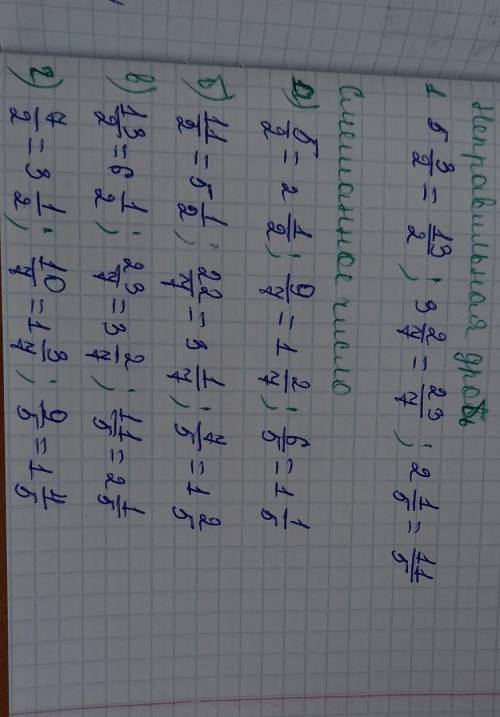 Неправильная дробь
1 5 3/2 = 13/2 ; 3 2/7 = 23/7 ; 2 1/5 = 11/5
Смешанное число
а) 5/2 = 2 1/2 ; 9/7 = 1 2/7 ; 6/5 = 1 1/5
б) 11/2 = 5 1/2 ; 22/7 = 3 1/7 ; 7/5 = 1 2/5
в) 13/2 = 6 1/2 ; 23/7 = 3 2/7 ; 11/5 = 2 1/5
г) 7/2 = 3 1/2 ; 10/7 = 1 3/7 ; 9/5 = 1 4/5